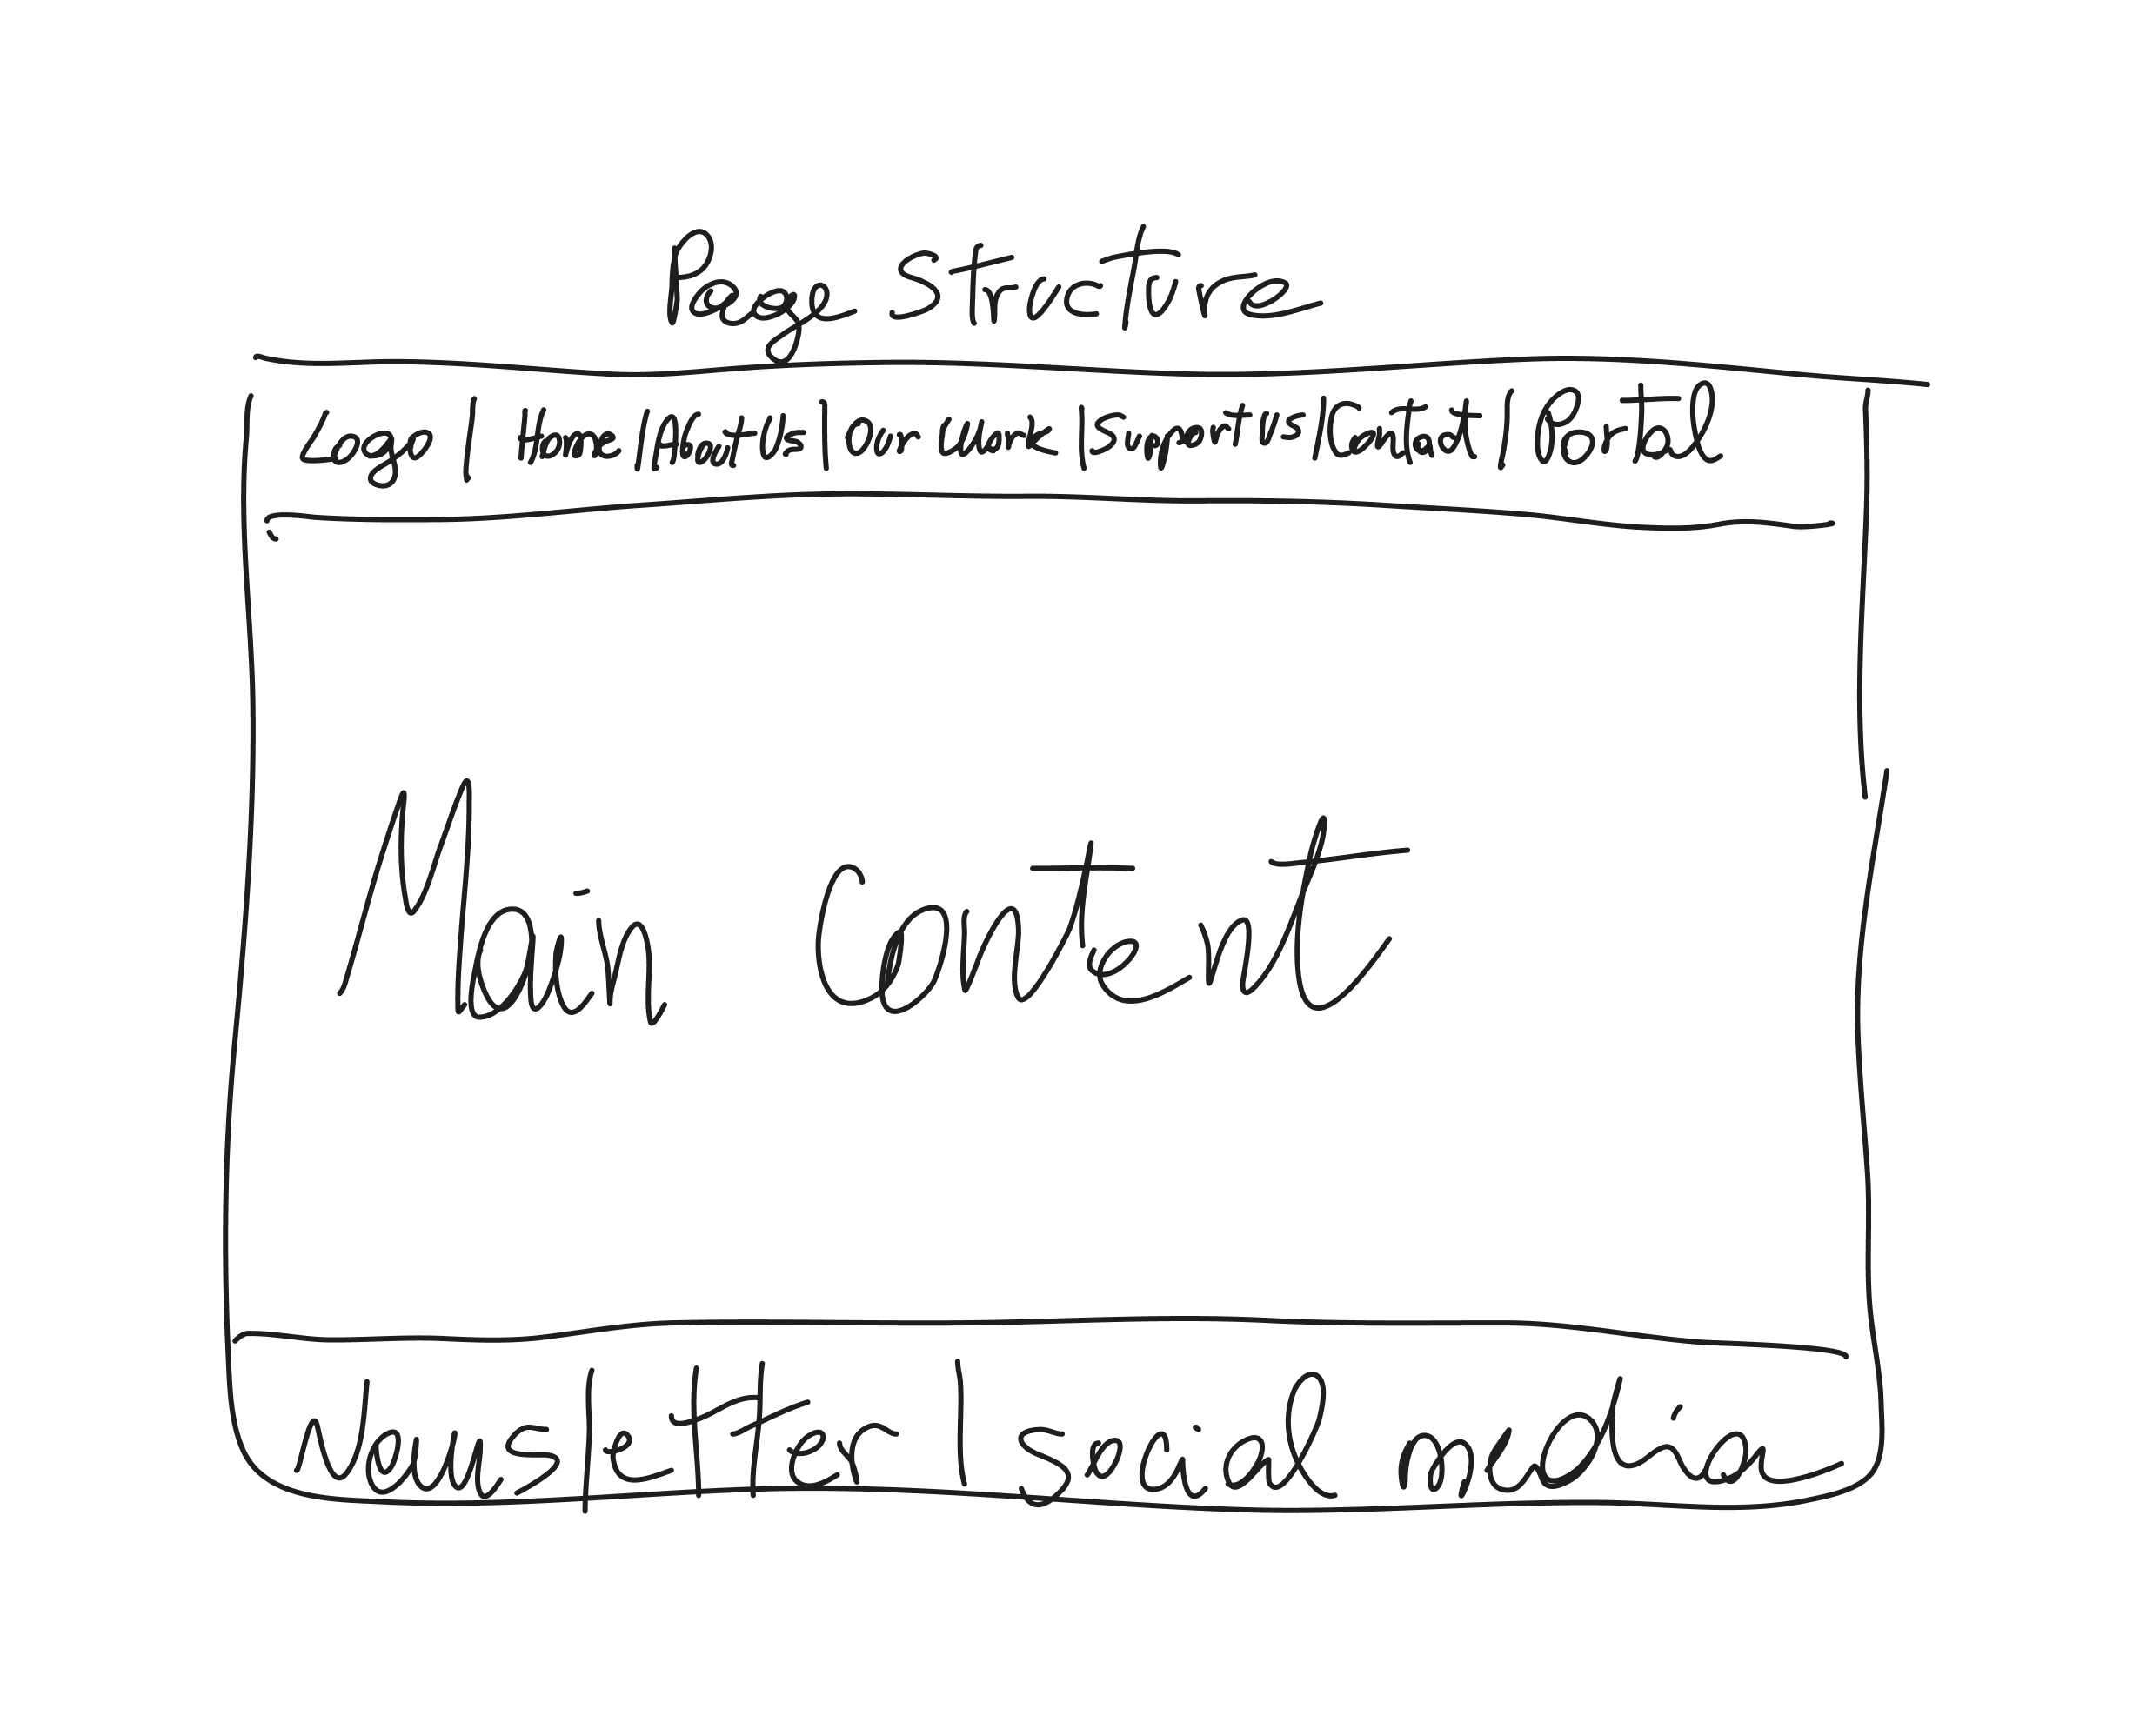 Page Structure
Logo | Home | About Us | Our Work | Support Us | Contact | Portal
Main Content
Newsletter | social media